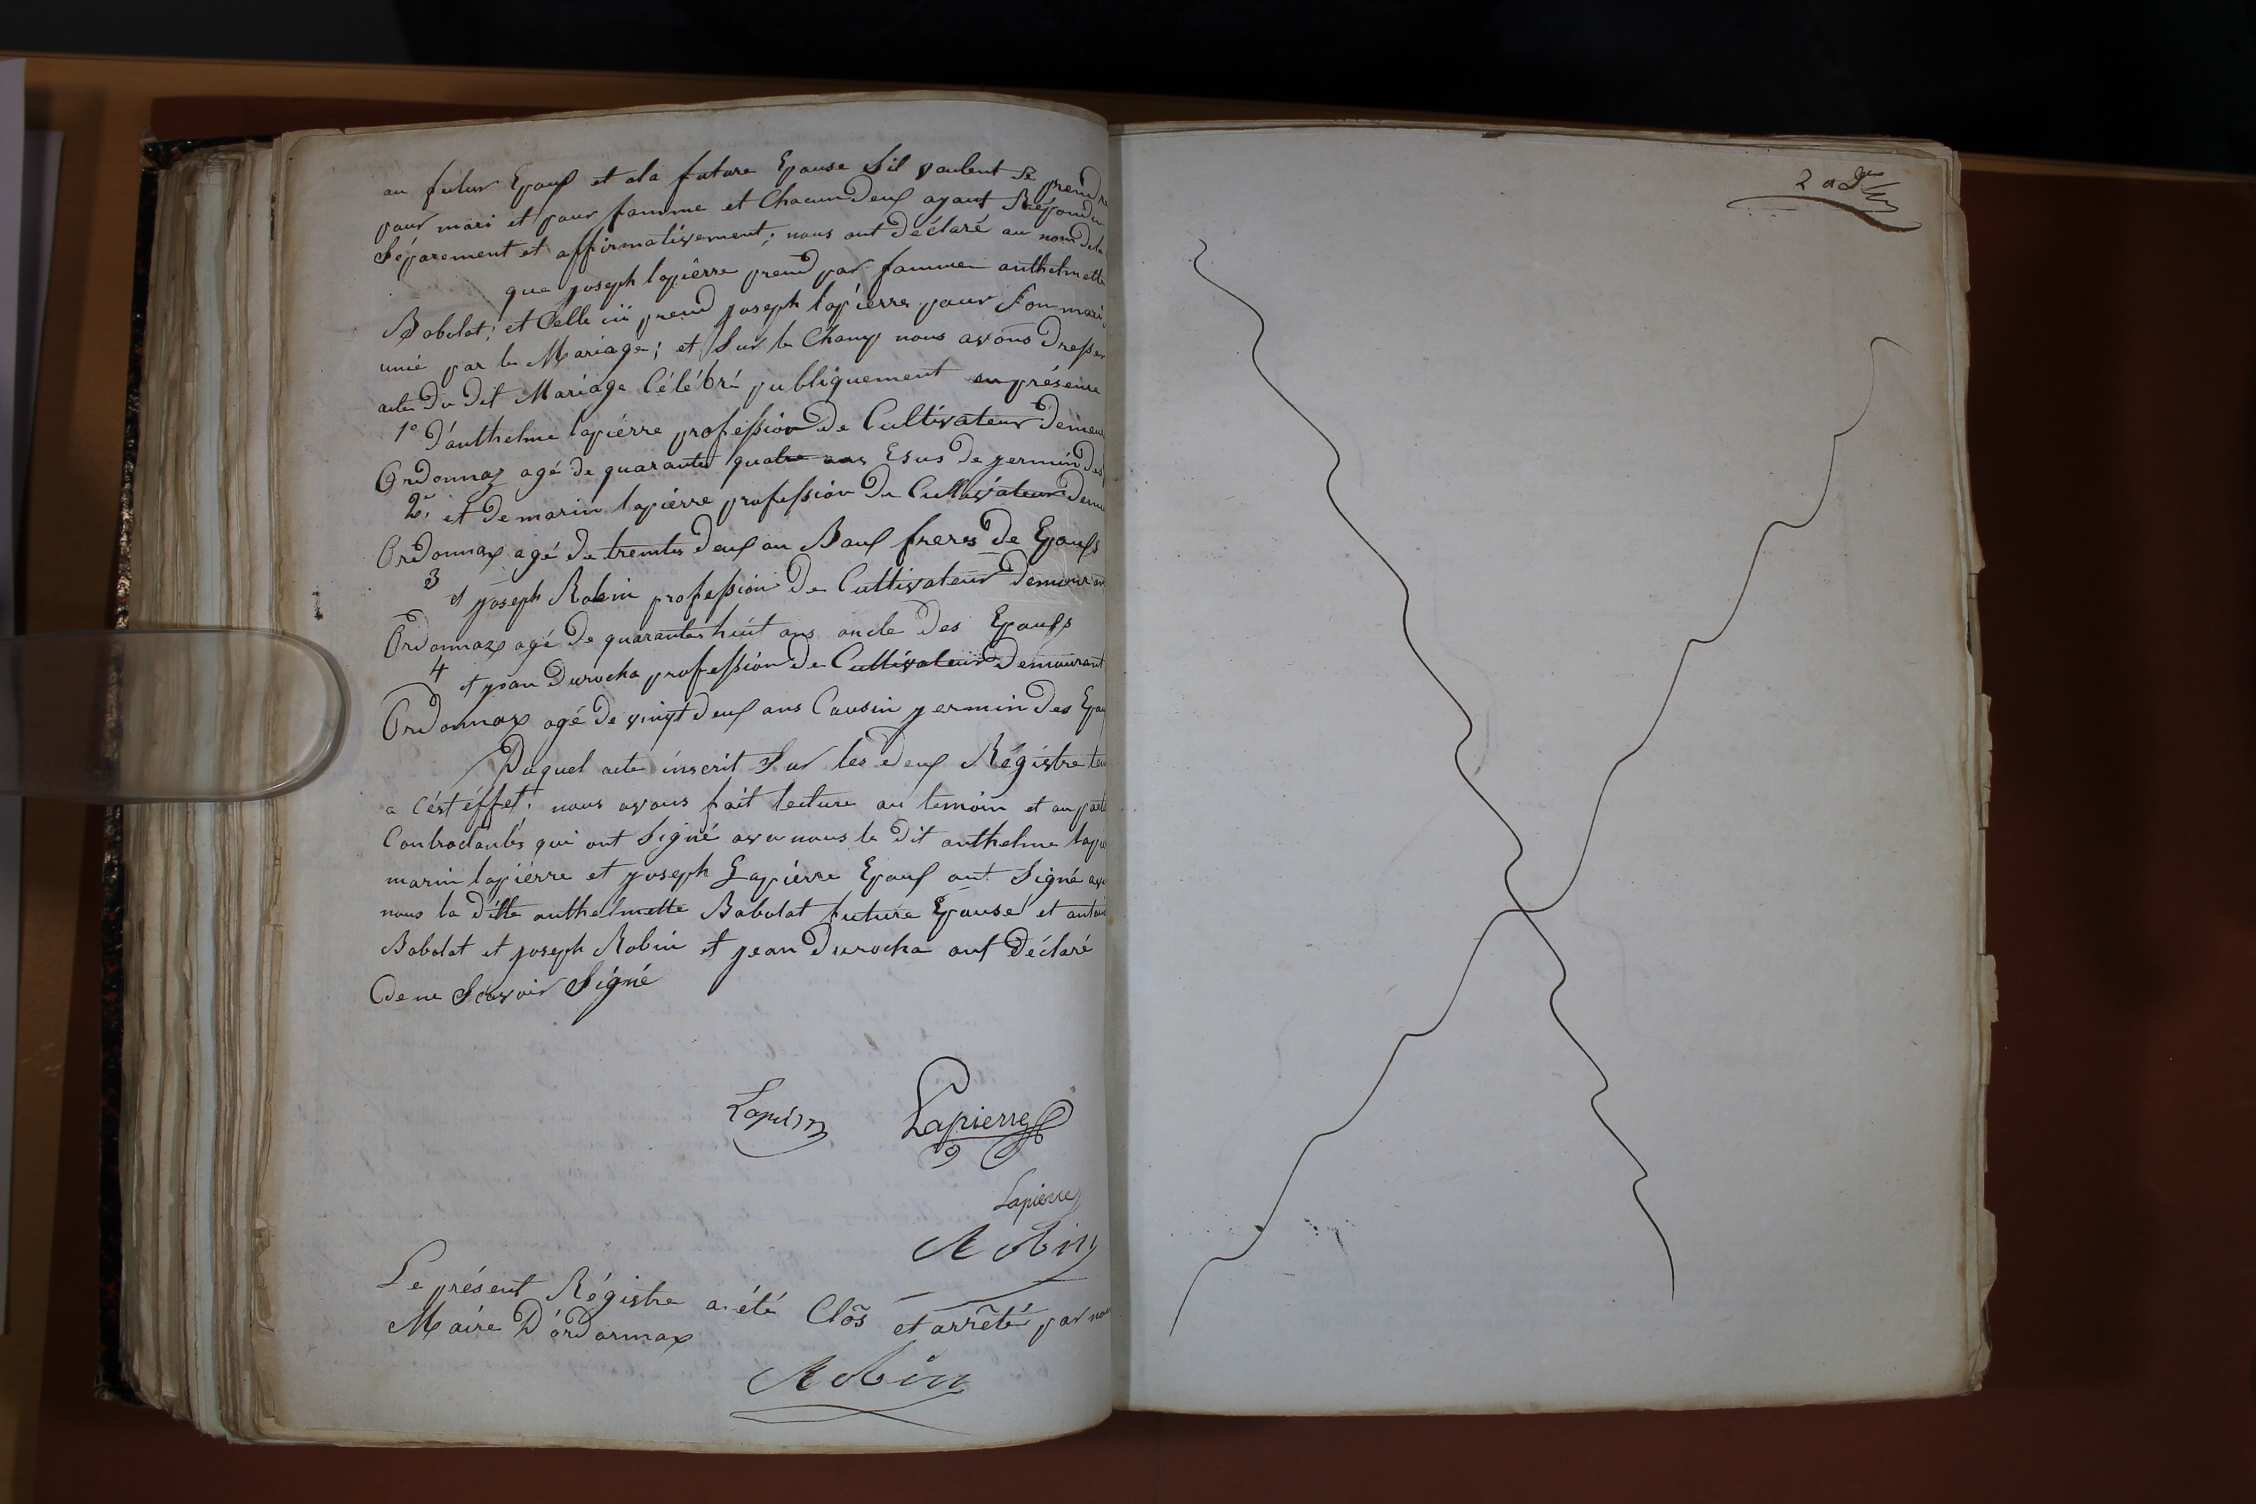 au futur Epoux et ala future Epouse Sil voulent se prendre
pour mari et pour famme et Chacun Deux ayant Répondu
Séparement et affirmativement; nous ont déclaré au nom Dela
que joseph lapiérre prend par famme anthelmette
Bobolat; et Celle cii prend joseph lapierre pour Son mari
unié par le Mariage; et Sur le Champ nous avons Dresser
acte Du Dit Mariage Célébré publiquement en présence
1° D'anthelme lapiérre profession De Cultivateur Demeu
Ordonnaz agé de quarante quatre ans De germin Des
2e. et De marin lapiérre profession De Cultivateur Dem
Ordonnax agé De trente Deux an Baux freres De Epoux
3 et joseph Robin profession De Cultivateur Demeurant
Ordonnax agé De quarante huit ans oncle Des Epouxs
4 et jean Durocha profession De Cultivateur Demeurant
Ordonnax agé De vingt Deux ans Cousin germin Des Epou
Duquel acte inscrit Sur les Deux Régistre ten
a cést éffet; nous avons fait lecture au temoin et au parti
Contractantes qui ont Signé avec nous le Dit anthelme lapie
marin lapiérre et joseph Lapiérre Epoux ont Signé ave
nous la Ditte anthelmette Bobolat future Epouse et antoi
Bobolat et joseph Robin et jean Durocha ont Déclaré
De ne Scavoir Signé
Lapierre Lapierre
Lapierre
Robin
Le présent Régistre a été Clôs et arrêté par nous
Maire D'órdonnax
Robin